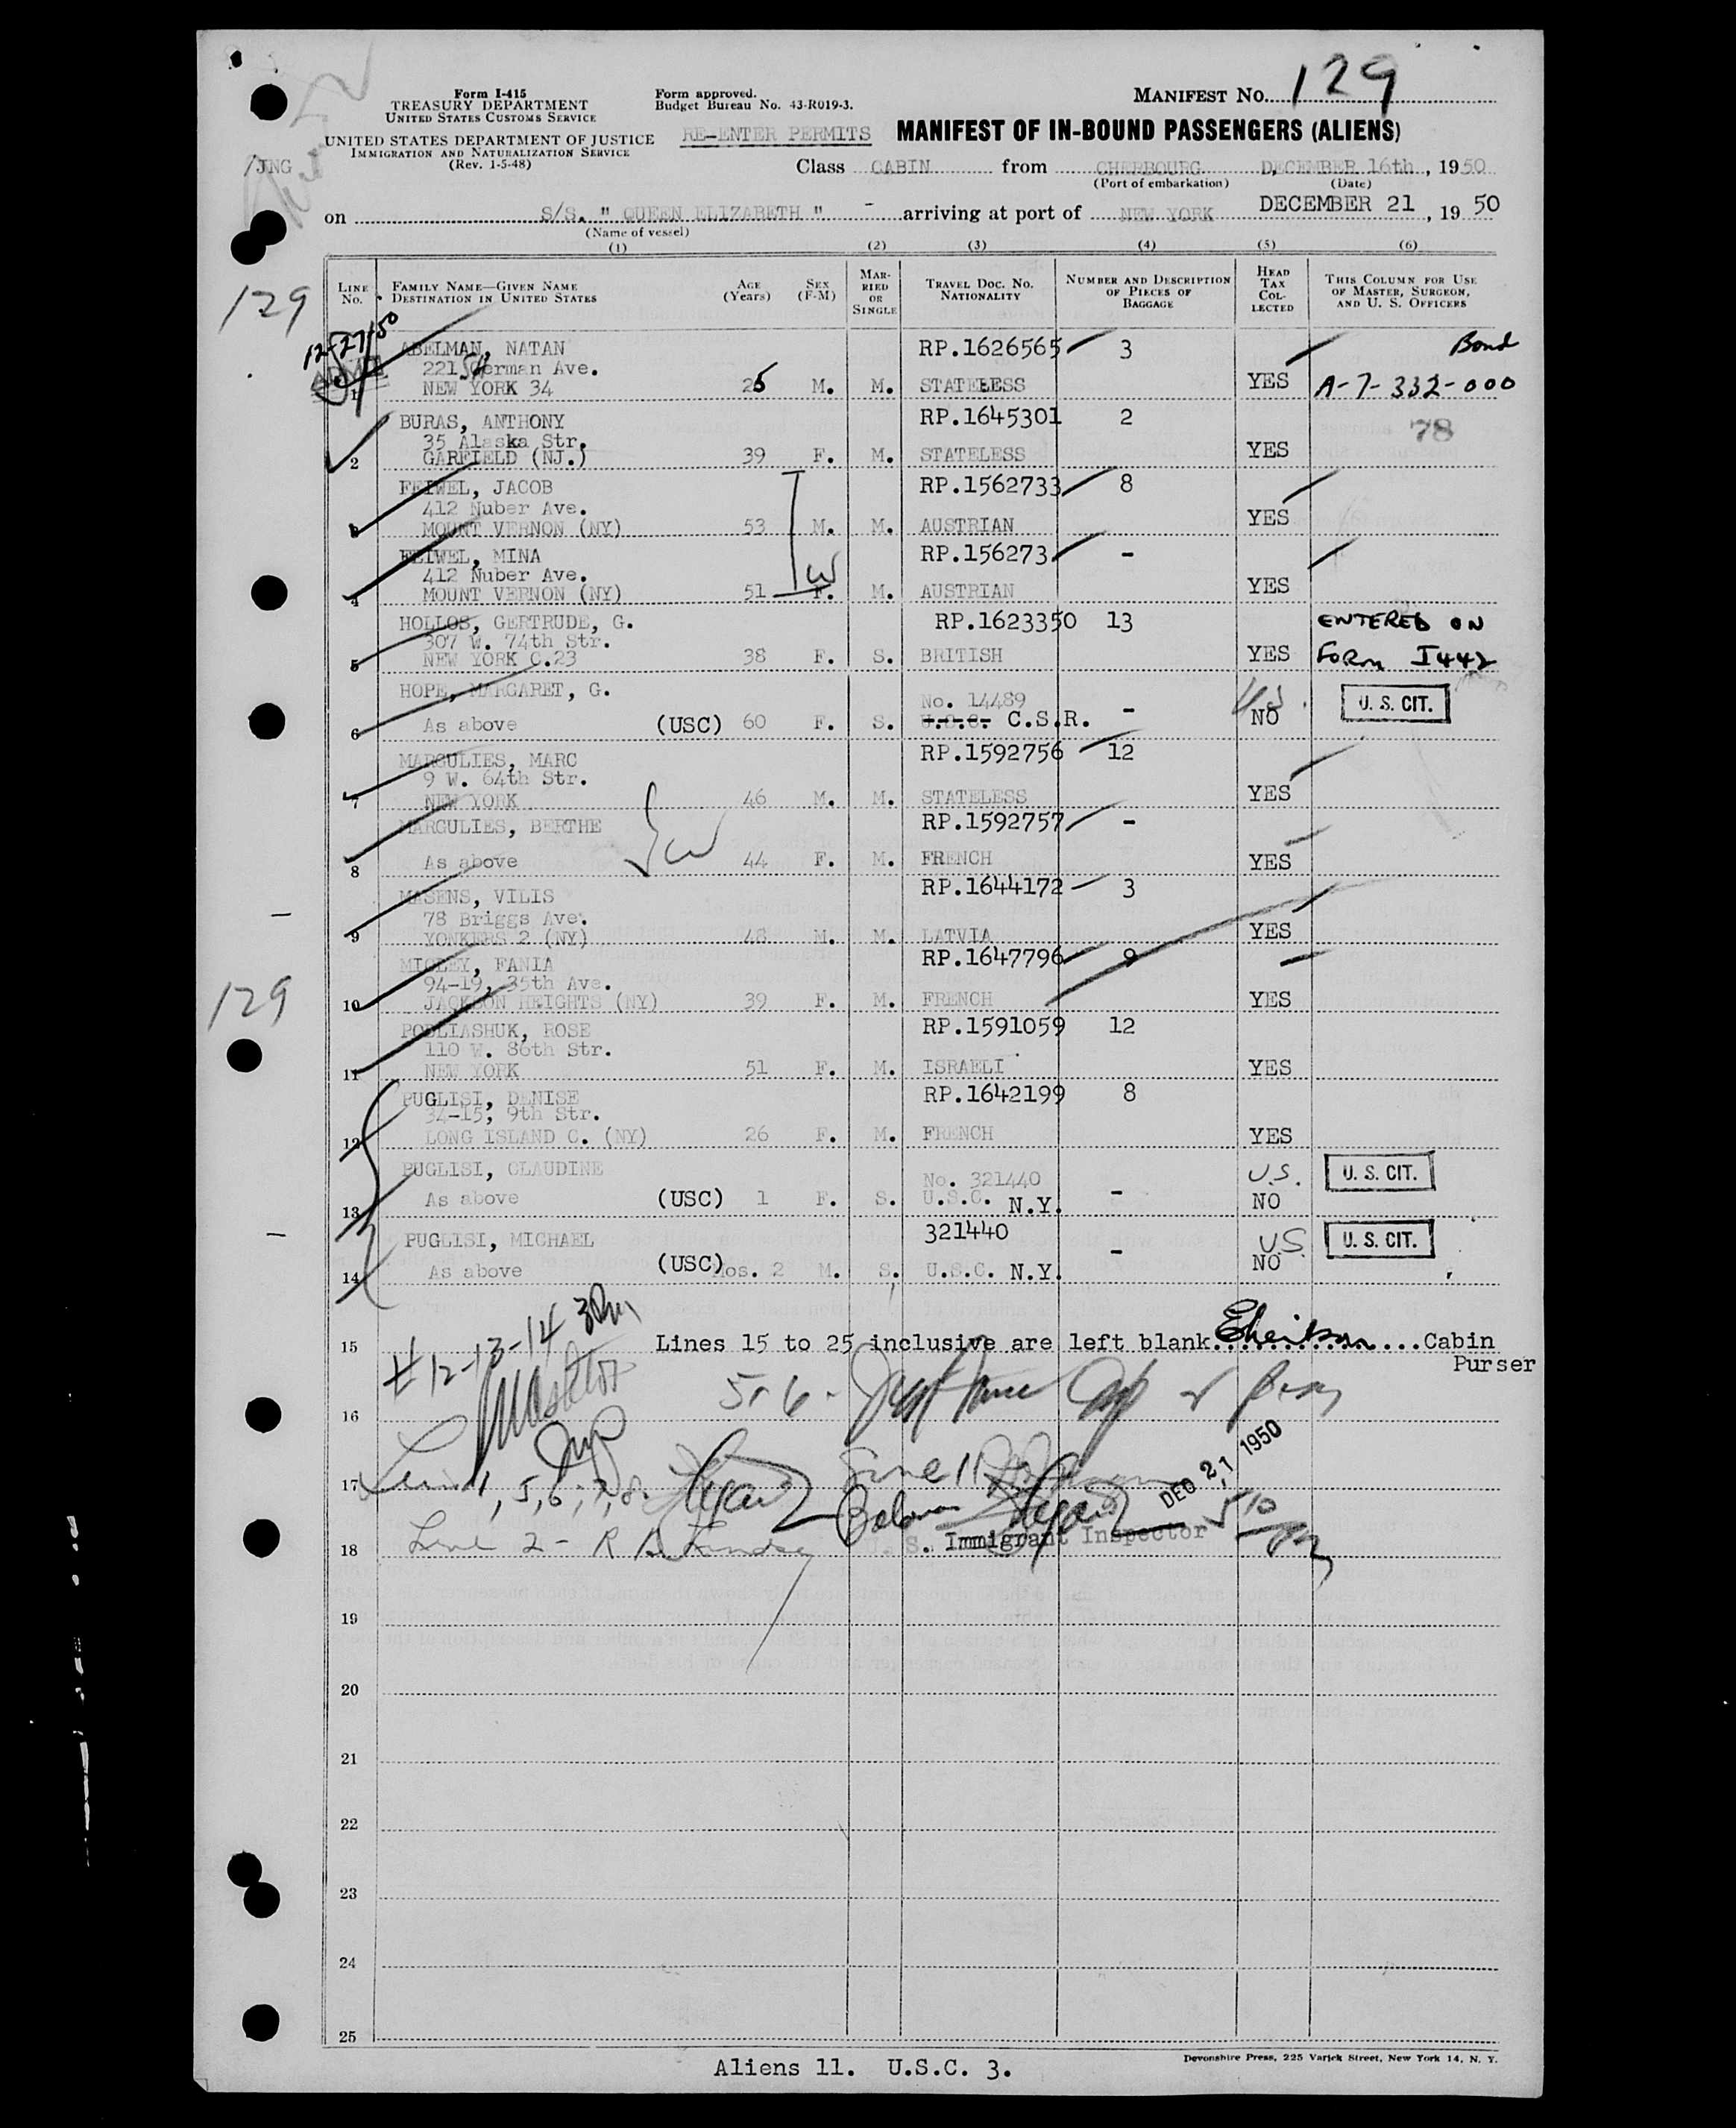 Form I-415
TREASURY DEPARTMENT
UNITED STATES CUSTOMS SERVICE
UNITED STATES DEPARTMENT OF JUSTICE
IMMIGRATION AND NATURALIZATION SERVICE
(Rev. 1-5-48)
Form approved.
Budget Bureau No. 43-R019-3.
MANIFEST NO. 129
RE-ENTER PERMITS MANIFEST OF IN-BOUND PASSENGERS (ALIENS)
/JNG
Class CABIN from CHERBOURG DECEMBER 16th, 1950
(Port of embarkation) (Date)
on S/S. " QUEEN ELIZABETH " - arriving at port of NEW YORK DECEMBER 21, 19 50
(Name of vessel)
(1) (2) (3) (4) (5) (6)
LINE NO. FAMILY NAME—GIVEN NAME DESTINATION IN UNITED STATES AGE (Years) SEX (F-M) MARRIED OR SINGLE TRAVEL DOC. NO. NATIONALITY NUMBER AND DESCRIPTION OF PIECES OF BAGGAGE HEAD TAX COLLECTED THIS COLUMN FOR USE OF MASTER, SURGEON, AND U. S. OFFICERS
129
12-27-50
ABELMAN, NATAN RP.1626565 3 Bond
221 Sherman Ave.
1 NEW YORK 34 25 M. M. STATELESS YES A-7-332-000
BURAS, ANTHONY RP.1645301 2 78
35 Alaska Str.
2 GARFIELD (NJ.) 39 F. M. STATELESS YES
FEIWEL, JACOB RP.1562733 8
412 Nuber Ave.
3 MOUNT VERNON (NY) 53 M. M. AUSTRIAN YES
FEIWEL, MINA RP.156273 -
412 Nuber Ave. W
4 MOUNT VERNON (NY) 51 F. M. AUSTRIAN YES
HOLLOS, GERTRUDE, G. RP.1623350 13 ENTERED ON
307 W. 74th Str.
5 NEW YORK C.23 38 F. S. BRITISH YES FORM I442
HOPE, MARGARET, G. No. 14489 U.S. U. S. CIT.
6 As above (USC) 60 F. S. U.S.C. C.S.R. - NO
MARGULIES, MARC RP.1592756 12
9 W. 64th Str.
7 NEW YORK 46 M. M. STATELESS YES
MARGULIES, BERTHE RP.1592757 -
W
8 As above 44 F. M. FRENCH YES
MASENS, VILIS RP.1644172 3
78 Briggs Ave.
9 YONKERS 2 (NY) 48 M. M. LATVIA YES
MIGLEY, FANIA RP.1647796 9
94-19, 35th Ave.
129
10 JACKSON HEIGHTS (NY) 39 F. M. FRENCH YES
PODLIASHUK, ROSE RP.1591059 12
110 W. 86th Str.
11 NEW YORK 51 F. M. ISRAELI YES
PUGLISI, DENISE RP.1642199 8
34-15, 9th Str.
12 LONG ISLAND C. (NY) 26 F. M. FRENCH YES
PUGLISI, CLAUDINE No. 321440 U.S. U. S. CIT.
13 As above (USC) 1 F. S. U.S.C. N.Y. - NO
PUGLISI, MICHAEL 321440 U.S. U. S. CIT.
14 As above (USC) Mos. 2 M. S. U.S.C. N.Y. - NO
15 Lines 15 to 25 inclusive are left blank. Cabin
Purser
# 12-13-14
16 5-6-
DEC 21 1950
17 1, 5, 6, 7, 8
18 Line 2 - U.S. Immigrant Inspector
19
20
21
22
23
24
25
Aliens 11. U.S.C. 3.
Devonshire Press, 225 Varick Street, New York 14, N. Y.